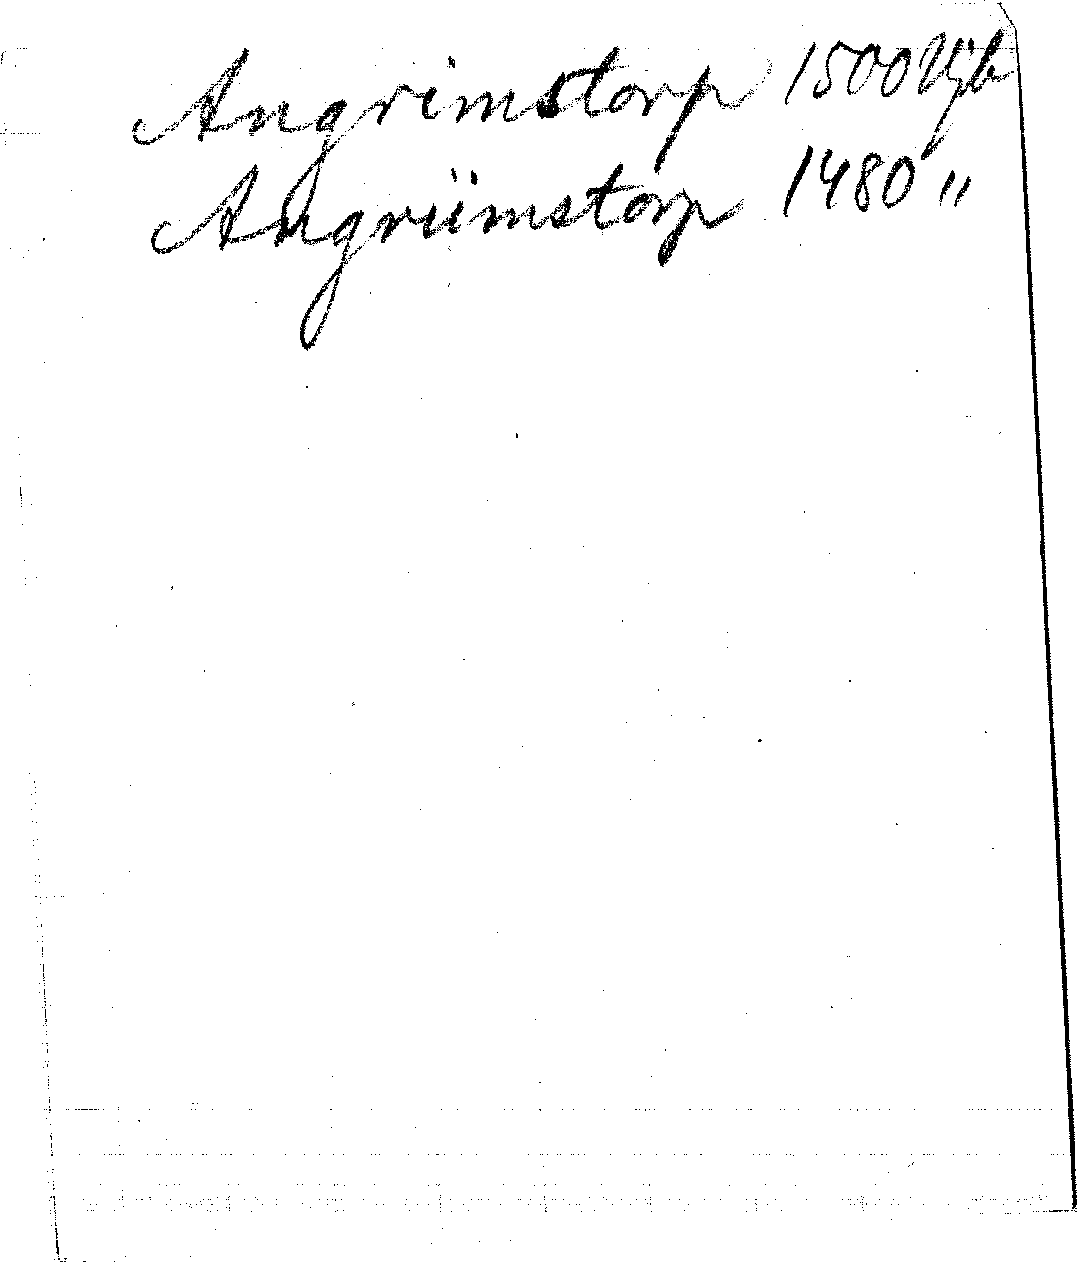 Angrimstorp 1500
Angriimstorp 1480 "